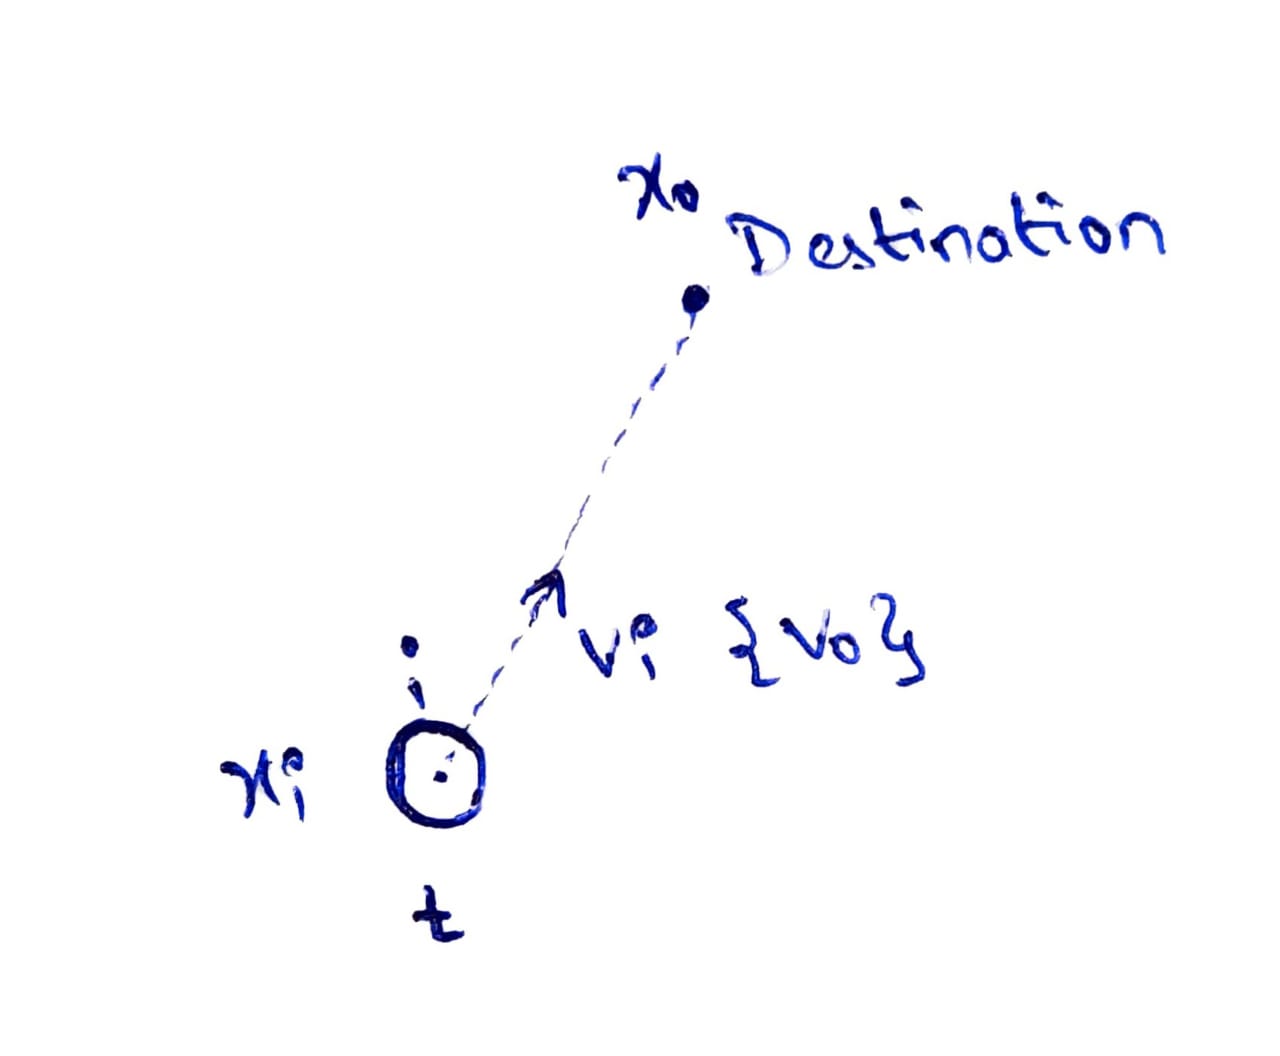 x₀
Destination
vᵢ {v₀}
xᵢ
t